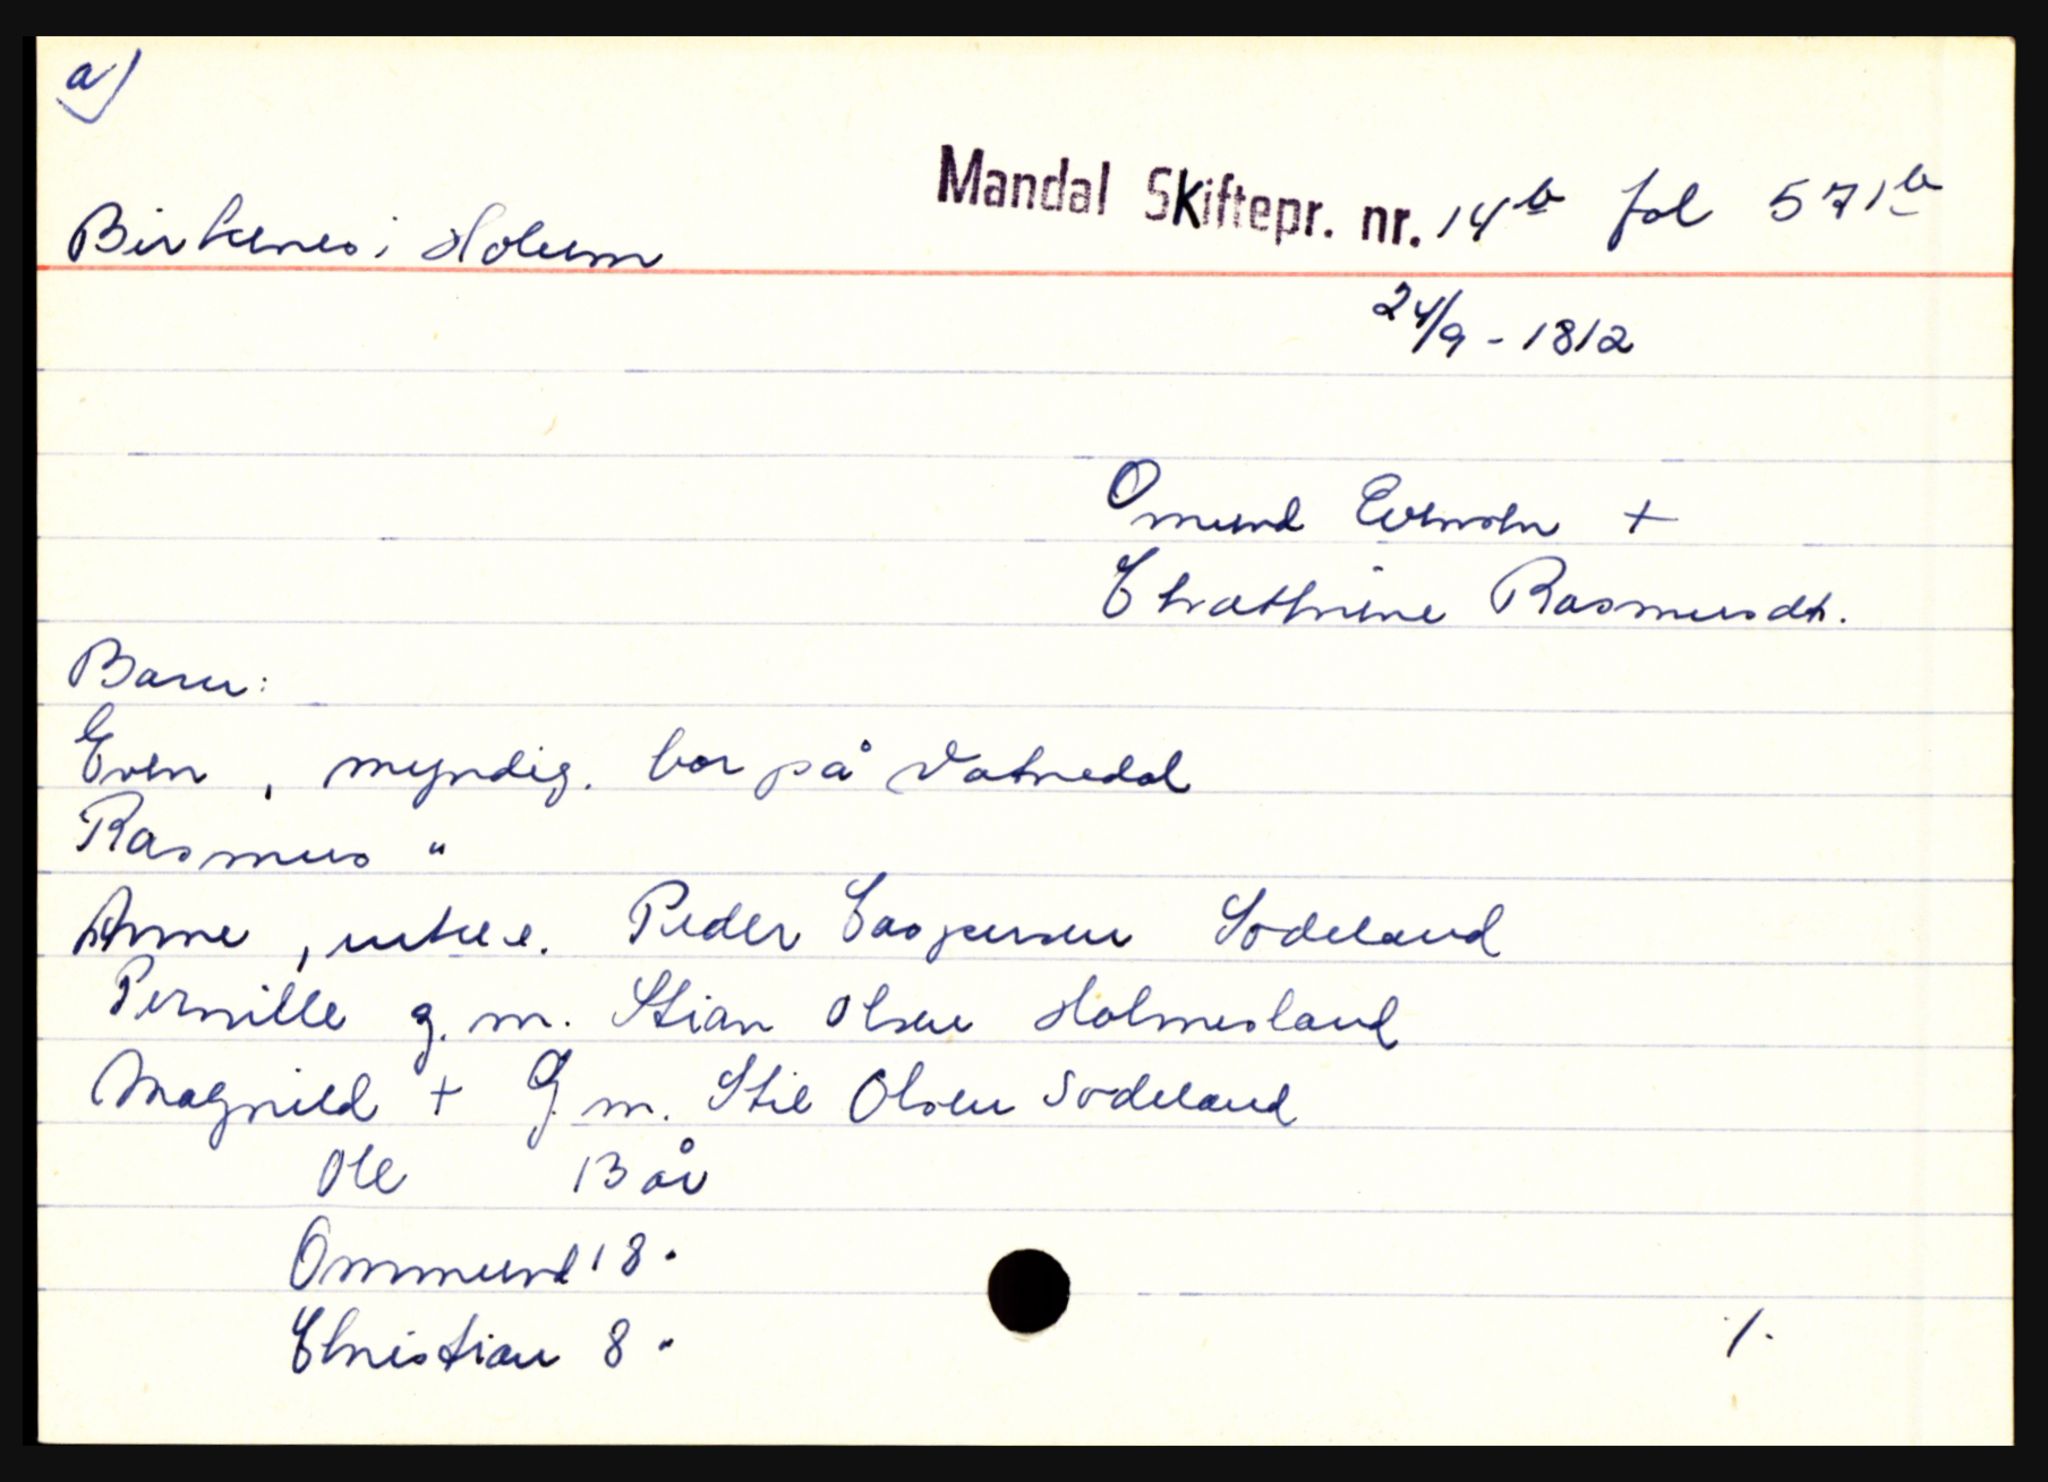 a)
Mandal Skiftepr. nr. 14b fol 571b
Birkenes i Holum
24/9 - 1812
Omund Evensen +
Chathrine Rasmusdt.
Barn:
Even , myndig. bor på Vatnedal
Rasmus "
Anne , enke e. Peder Caspersen Sodeland
Pernille g. m. Stian Olsen Holmesland
Magnild + G. m. Stil Olsen Sodeland
Ole 13 år
Ommund 18 "
Christian 8 "
/.